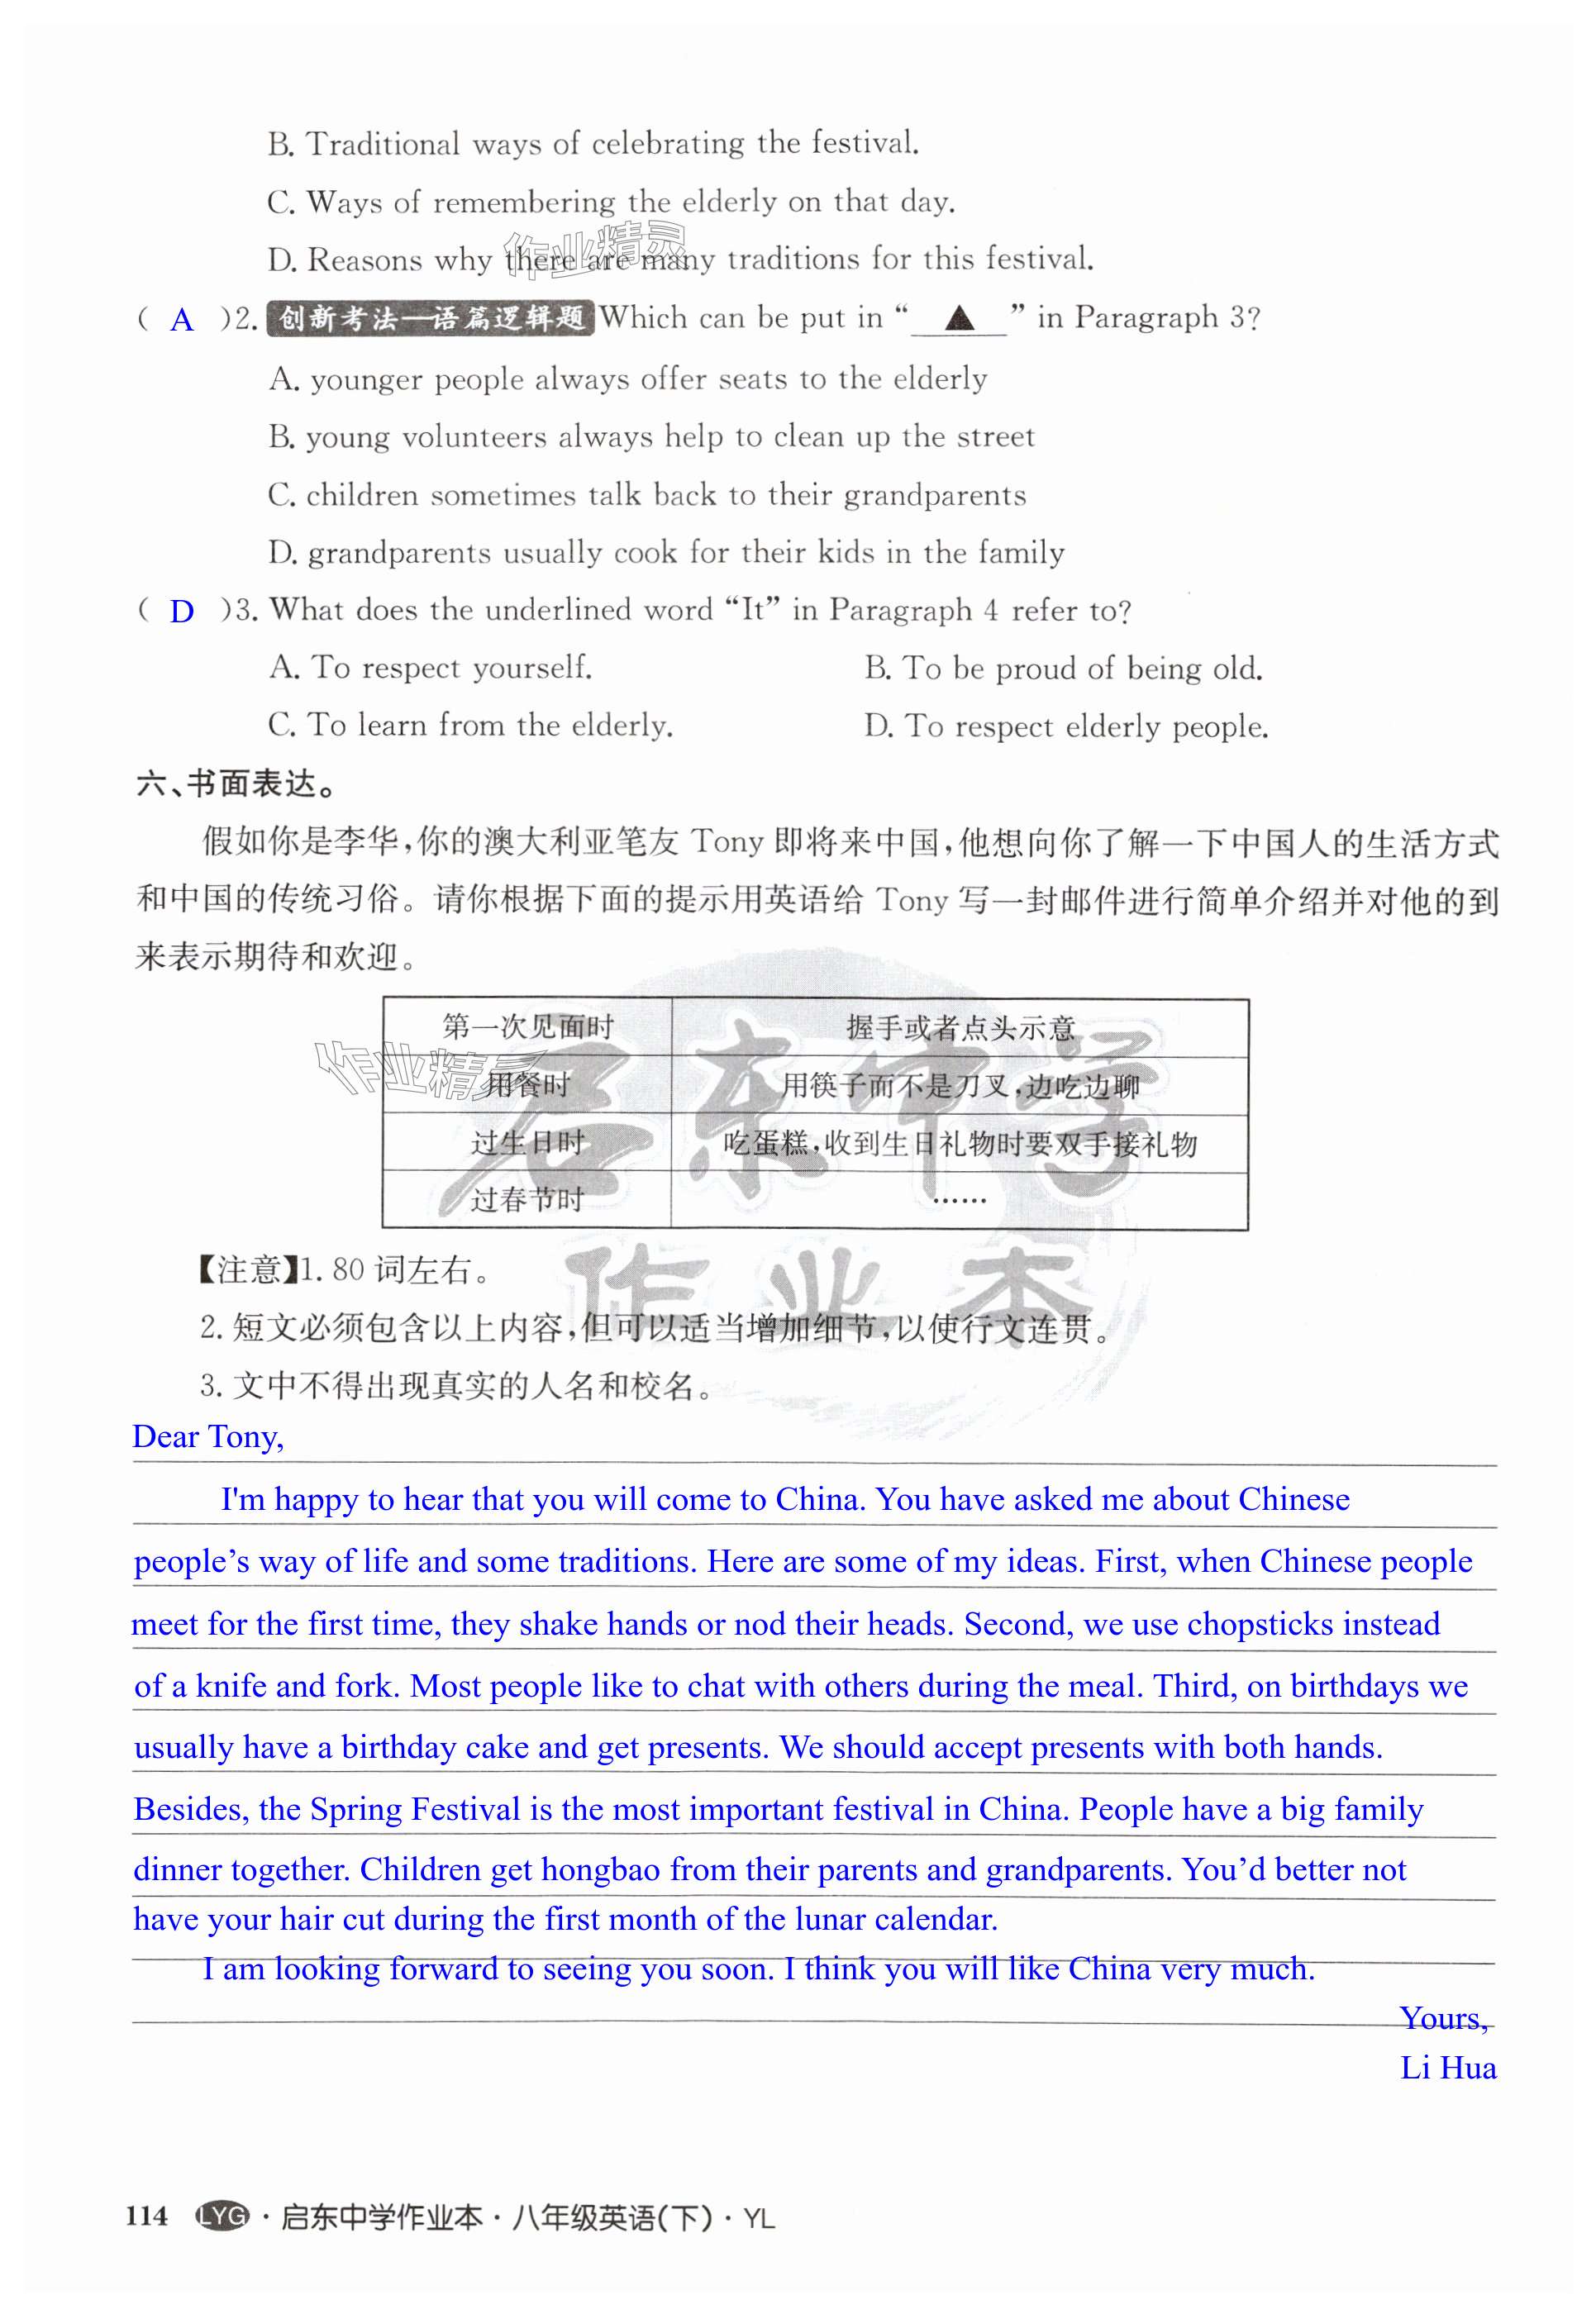 B. Traditional ways of celebrating the festival.
C. Ways of remembering the elderly on that day.
D. Reasons why there are many traditions for this festival.
作业精灵
( A )2. 创新考法—语篇逻辑题 Which can be put in “ ▲ ” in Paragraph 3?
A. younger people always offer seats to the elderly
B. young volunteers always help to clean up the street
C. children sometimes talk back to their grandparents
D. grandparents usually cook for their kids in the family
( D )3. What does the underlined word “It” in Paragraph 4 refer to?
A. To respect yourself. B. To be proud of being old.
C. To learn from the elderly. D. To respect elderly people.
六、书面表达。
假如你是李华,你的澳大利亚笔友 Tony 即将来中国,他想向你了解一下中国人的生活方式
和中国的传统习俗。请你根据下面的提示用英语给 Tony 写一封邮件进行简单介绍并对他的到
来表示期待和欢迎。
第一次见面时 握手或者点头示意
作业精灵
用餐时 用筷子而不是刀叉,边吃边聊
启东中学
过生日时 吃蛋糕,收到生日礼物时要双手接礼物
过春节时 ……
作业本
【注意】1. 80 词左右。
2. 短文必须包含以上内容,但可以适当增加细节,以使行文连贯。
3. 文中不得出现真实的人名和校名。
Dear Tony,
I'm happy to hear that you will come to China. You have asked me about Chinese
people’s way of life and some traditions. Here are some of my ideas. First, when Chinese people
meet for the first time, they shake hands or nod their heads. Second, we use chopsticks instead
of a knife and fork. Most people like to chat with others during the meal. Third, on birthdays we
usually have a birthday cake and get presents. We should accept presents with both hands.
Besides, the Spring Festival is the most important festival in China. People have a big family
dinner together. Children get hongbao from their parents and grandparents. You’d better not
have your hair cut during the first month of the lunar calendar.
I am looking forward to seeing you soon. I think you will like China very much.
Yours,
Li Hua
114 LYG · 启东中学作业本 · 八年级英语(下) · YL